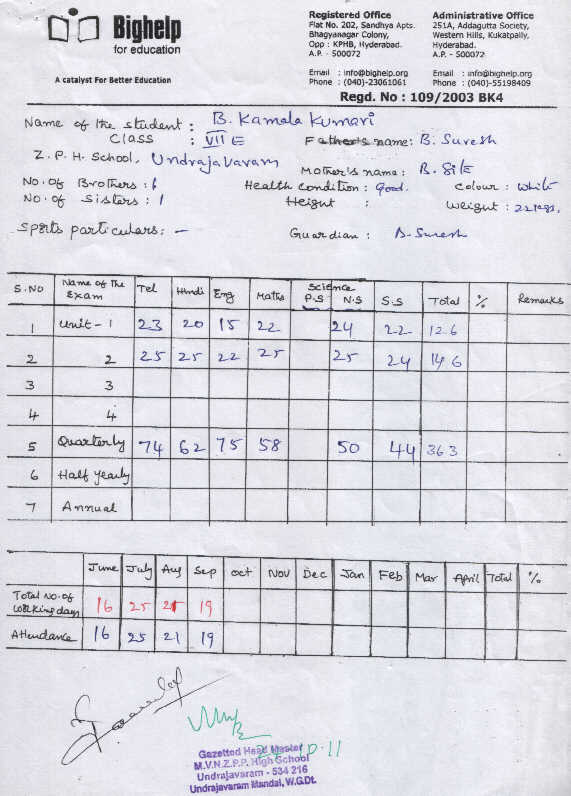 Bighelp
for education
A catalyst For Better Education
Registered Office
Flat No. 202, Sandhya Apts.
Bhagyanagar Colony,
Opp : KPHB, Hyderabad.
A.P. - 500072
Email : info@bighelp.org
Phone : (040)-23061061
Administrative Office
251A, Addagutta Society,
Western Hills, Kukatpally,
Hyderabad.
A.P. - 500072
Email : info@bighelp.org
Phone : (040)-55198409
Regd. No : 109/2003 BK4
Name of the student : B. Kamala Kumari
Class : VII E Father's name: B. Suresh
Z. P. H. School, Undrajavaram Mother's name : B.
No. of Brothers : 1 Health Condition : Good. Colour : White
No. of Sisters : 1 Height : Weight : 22kgs.
Sports particulars : - Guardian : B. Suresh
S.NO Name of the Exam Tel Hindi Eng Maths Science P.S N.S S.S Total % Remarks
1 Unit - 1 23 20 15 22 24 22 126
2 2 25 25 22 25 25 24 146
3 3
4 4
5 Quarterly 74 62 75 58 50 44 363
6 Half yearly
7 Annual
June July Aug Sep Oct Nov Dec Jan Feb Mar April Total %
Total No. of Working days 16 25 21 19
Attendance 16 25 21 19
10.11
Gazetted Head Master
M.V.N.Z.P.P. High School
Undrajavaram - 534 216
Undrajavaram Mandal, W.G.Dt.